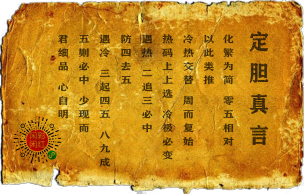 定胆真言
化繁为简 零五相对
以此类推
冷热交替 周而复始
热码上上选 冷极必变
遇热 二追三必中
防四去五
遇冷 三起四五 八九成
五则必中 少现而
君细品 心自明